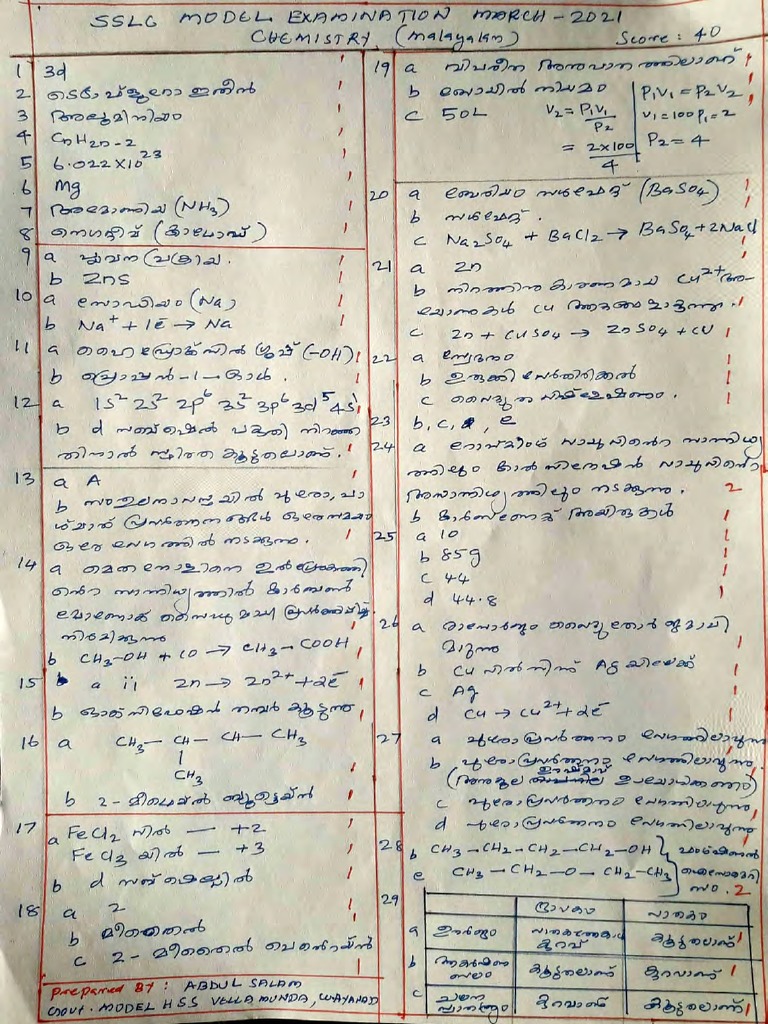 SSLC MODEL EXAMINATION MARCH-2021
CHEMISTRY, (Malayalam) Score: 40
1 3d
2 ടെട്രാഫ്ളൂറോ ഇതീൻ
3 അലൂമിനിയം
4 CnH2n-2
5 6.022×10²³
6 Mg
7 അമോണിയ (NH3)
8 നെഗറ്റീവ് (കാഥോഡ്)
9 a പ്ലവന പ്രക്രിയ.
b ZnS
10 a സോഡിയം (Na)
b Na⁺ + 1ē → Na
11 a ഹൈഡ്രോക്സിൽ ഗ്രൂപ്പ് (-OH)
b പ്രൊപ്പൻ-1-ഓൾ.
12 a 1s² 2s² 2p⁶ 3s² 3p⁶ 3d⁵ 4s¹
b d സബ്ഷെൽ പകുതി നിറഞ്ഞ
തിനാൽ സ്ഥിരത കൂടുതലാണ്.
13 a A
b സംതുലനാവസ്ഥയിൽ പുരോ, പശ്
ചാത് പ്രവർത്തനങ്ങൾ ഒരേസമയം
ഒരേ വേഗത്തിൽ നടക്കുന്നു.
14 a മെതനോളിനെ ഉൽപ്രേരകത്തി
ന്റെ സാന്നിധ്യത്തിൽ കാർബൺ
മോണോക്സൈഡുമായി പ്രവർത്തിപ്പിച്ച്
നിർമ്മിക്കുന്നു
b CH3-OH + CO → CH3-COOH
15 a ii Zn → Zn²⁺ + 2ē
b ഓക്സിഡേഷൻ നമ്പർ കൂടുന്നു
16 a CH3 — CH — CH — CH3
|
CH3
b 2-മീഥെയ്ൽ ബ്യൂട്ടെയ്ൻ
17 a FeCl2 ൽ — +2
FeCl3 യിൽ — +3
b d സബ്ഷെല്ലിൽ
18 a 2
b മീതൈൽ
c 2-മീതൈൽ പെന്റെയ്ൻ
Prepared BY: ABDUL SALAM
GOVT. MODEL HSS VELLAMUNDA, WAYANAD
19 a വിപരീത അനുപാതത്തിലാണ്
b ബോയിൽ നിയമം
c 50L V2 = P1V1/P2
= 2×100/4
P1V1 = P2V2
V1=100 P1=2
P2=4
20 a ബേരിയം സൾഫേറ്റ് (BaSO4)
b സൾഫേറ്റ്.
c Na2SO4 + BaCl2 → BaSO4+2NaCl
21 a Zn
b നിറത്തിനു കാരണമായ Cu²⁺ അ
യോണുകൾ Cu ആറ്റങ്ങളാകുന്നു.
c Zn + CuSO4 → ZnSO4 + Cu
22 a സ്വേദനം
b ഉരുക്കി വേർതിരിക്കൽ
c വൈദ്യുത വിശ്ലേഷണം.
23 b, c, e
24 a റോസ്റ്റിംഗ് വായുവിന്റെ സാന്നിധ്യ
ത്തിലും കാൽസിനേഷൻ വായുവിന്റെ
അസാന്നിധ്യത്തിലും നടക്കുന്നു. 2
b കാർബണേറ്റ് അയിരുകൾ
25 a 10
b 85g
c 44
d 44.8
26 a രാസോർജം വൈദ്യുതോർജമായി
മാറുന്നു
b Cu വിൽ നിന്ന് Ag യിലേക്ക്
c Ag
d Cu → Cu²⁺ + 2ē
27 a പുരോപ്രവർത്തനം വേഗത്തിലാവുന്നു
b പുരോപ്രവർത്തനം വേഗത്തിലാവുന്നു.
(അനുകൂല ഊഷ്മാവ് ഉപയോഗിക്കണം)
c പുരോപ്രവർത്തനം വേഗത്തിലാവുന്നു
d പുരോപ്രവർത്തനം വേഗത്തിലാവുന്നു
28 b CH3-CH2-CH2-CH2-OH ഫങ്ഷണൽ
e CH3-CH2-O-CH2-CH3 ഐസോമെറി
സം. 2
29 ദ്രാവകം വാതകം
a ഊർജം വാതകത്തേക്കാൾ കുറവ് കൂടുതലാണ്
b ആകർഷണ ബലം കൂടുതലാണ് കുറവാണ്
c ചലന സ്വാതന്ത്ര്യം കുറവാണ് കൂടുതലാണ്